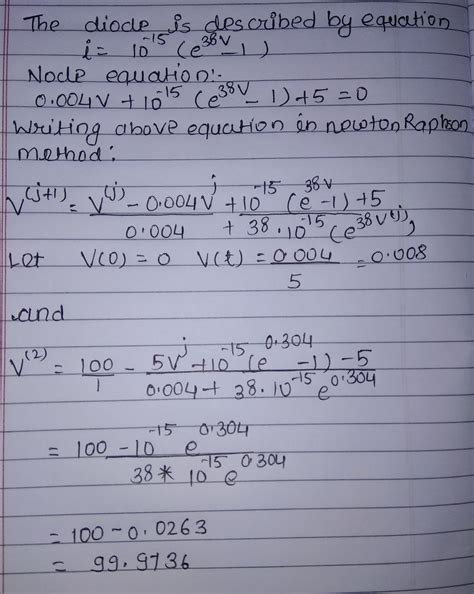 The diode is described by equation
i = 10^-15 (e^38V - 1)
Node equation:-
0.004V + 10^-15 (e^38V - 1) + 5 = 0
Writing above equation in newton Raphson
method:
V^(j+1) = V^(j) - 0.004V^j + 10^-15 (e^38V - 1) + 5
0.004 + 38.10^-15 (e^38V^(j))
Let V(0) = 0 V(t) = 0.004 = 0.008
5
and
V^(2) = 100 - 5V^j + 10^-15 (e^0.304 - 1) - 5
1 0.004 + 38.10^-15 e^0.304
= 100 - 10^-15 e^0.304
38 * 10^-15 e^0.304
= 100 - 0.0263
= 99.9736